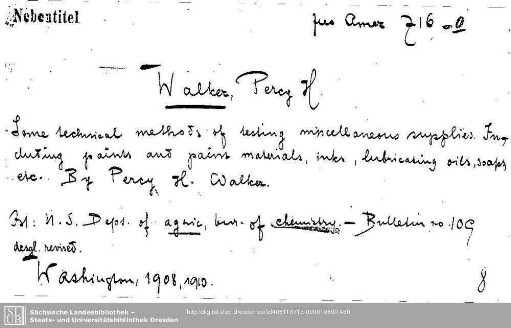 Nebentitel
Amer 716
Walker, Percy H
Some technical methods of testing miscellaneous supplies. In-
cluding paints and paint materials, inks, lubricating oils, soaps
etc. By Percy H. Walker.
U.S. Dept. of agric, bur. of chemistry. - Bulletin no. 109
desgl. revised.
Washington, 1908, 1910.
8
Sächsische Landesbibliothek –
Staats- und Universitätsbibliothek Dresden